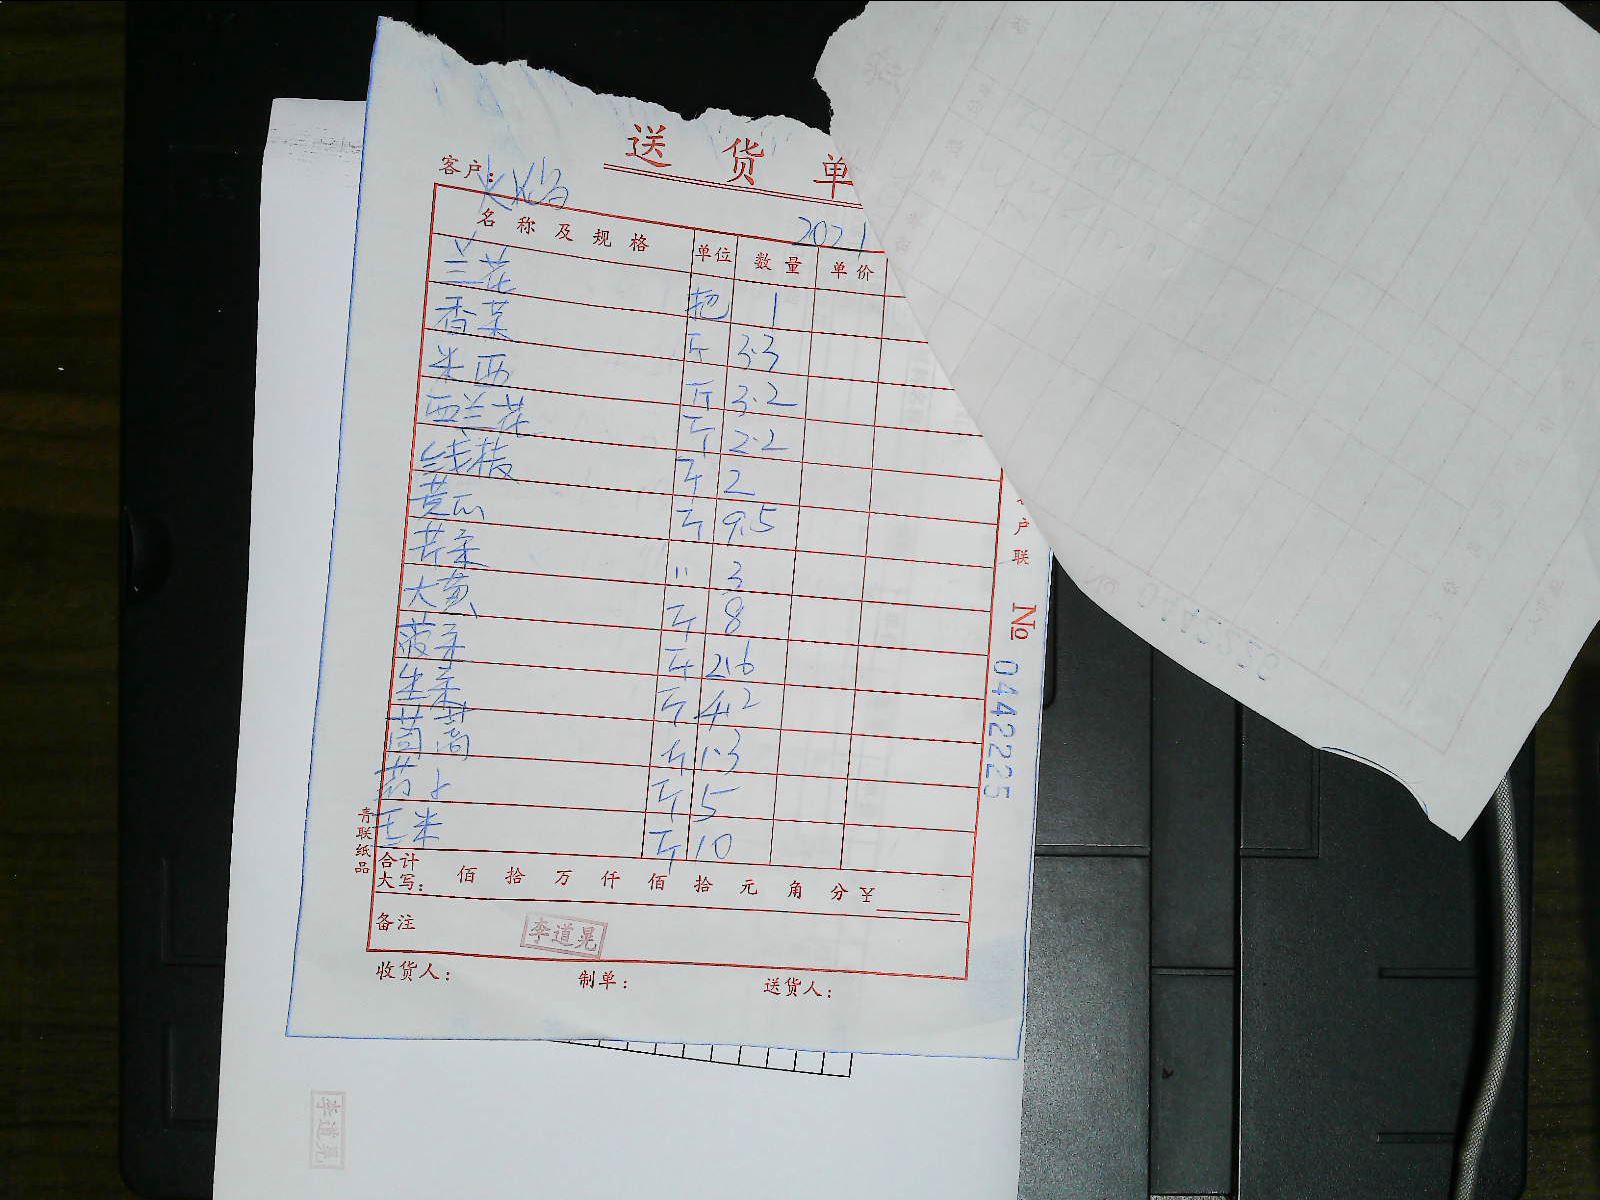 送货单
客户:
2021
名称及规格 单位 数量 单价
兰花 把 1
香菜 斤 3.3
米西 斤 3.2
西兰花 斤 2.2
线椒 斤 2
黄瓜 斤 9.5
芹菜 〃 3
大黄 斤 8
菠菜 斤 2.6
生菜 斤 4.2
茼蒿 斤 1.3
卜 斤 5
玉米 斤 10
合计
大写: 佰 拾 万 仟 佰 拾 元 角 分 ¥
备注
李道晃
收货人: 制单: 送货人:
青联纸品
户联
No 0442225
李道晃